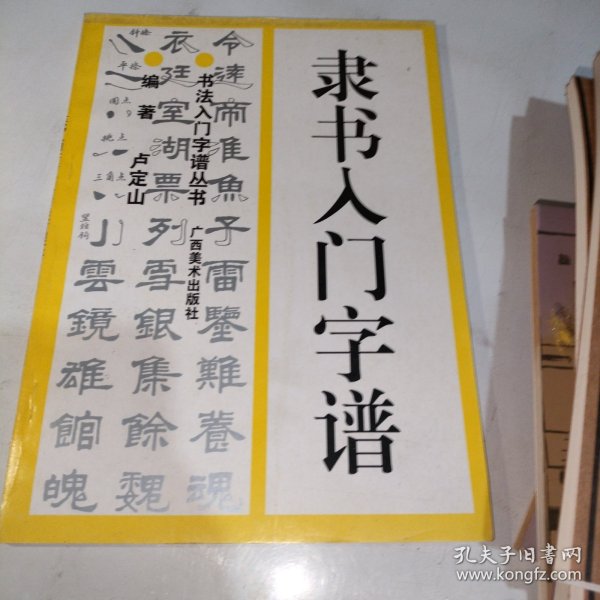 隶书入门字谱
书法入门字谱丛书
编著
卢定山
广西美术出版社
令達帝淮魚
子雷鑒難養魂
衣廷室湖票
列雪銀集餘魏
斜捺
平捺
圆点
挑点
三角点
竖钩
雲鏡雄館魄
孔夫子旧书网
www.kongfz.com